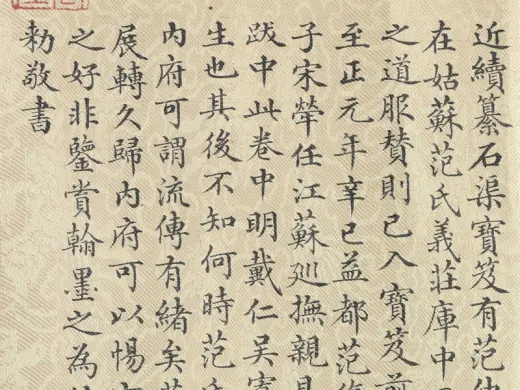 近續纂石渠寶笈有范仲
在姑蘇范氏義莊庫中
之道服贊則已入寶笈前
至正元年辛巳益都范
子宋犖任江蘇廵撫親見
跋中此卷中明戴仁吳寬
生也其後不知何時范氏
內府可謂流傳有緒矣
展轉久歸內府可以惕
之好非鑒賞翰墨之為
勑敬書